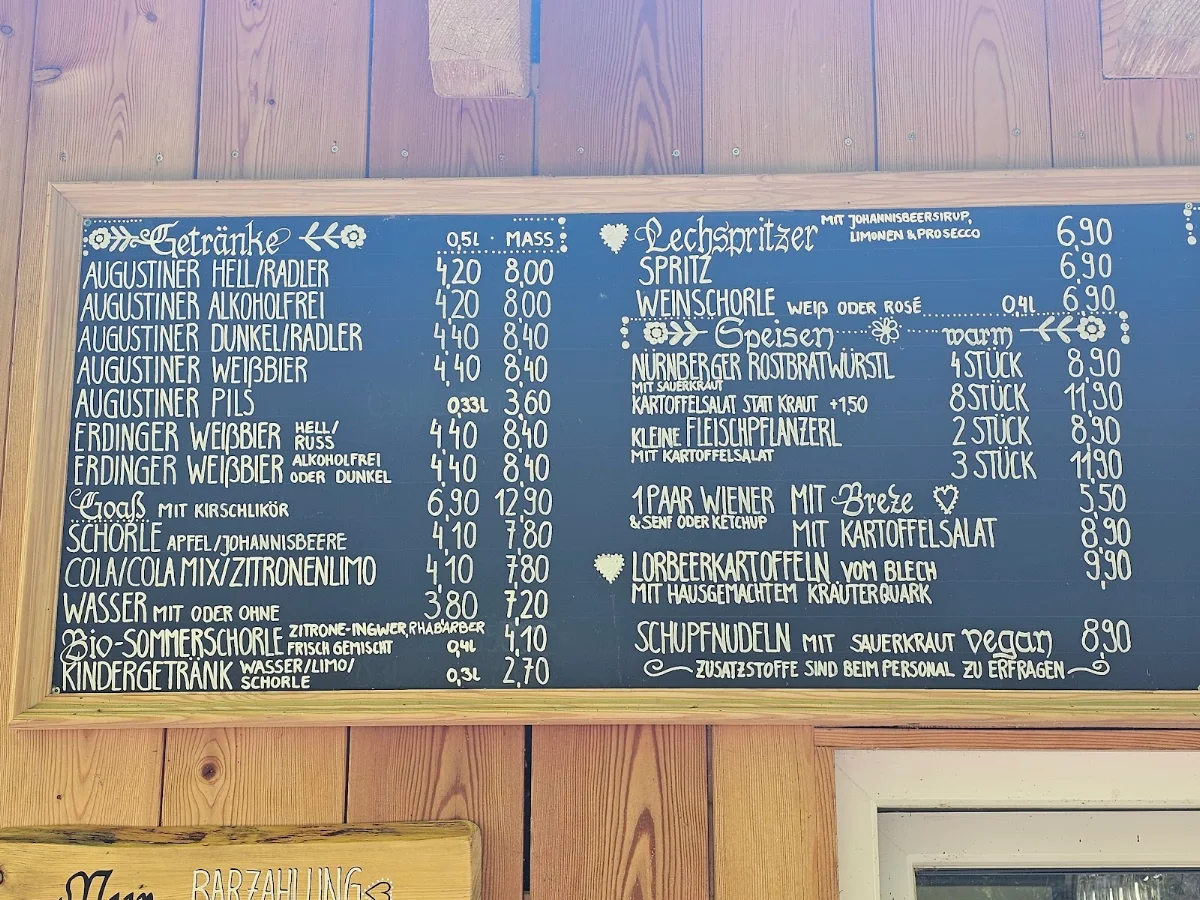 Getränke 0,5L MASS
AUGUSTINER HELL/RADLER 4,20 8,00
AUGUSTINER ALKOHOLFREI 4,20 8,00
AUGUSTINER DUNKEL/RADLER 4,40 8,40
AUGUSTINER WEIßBIER 4,40 8,40
AUGUSTINER PILS 0,33L 3,60
ERDINGER WEIßBIER HELL/ RUSS 4,40 8,40
ERDINGER WEIßBIER ALKOHOLFREI ODER DUNKEL 4,40 8,40
Goaß MIT KIRSCHLIKÖR 6,90 12,90
SCHORLE APFEL/JOHANNISBEERE 4,10 7,80
COLA/COLA MIX/ZITRONENLIMO 4,10 7,80
WASSER MIT ODER OHNE 3,80 7,20
Bio-SOMMERSCHORLE ZITRONE-INGWER, RHABARBER FRISCH GEMISCHT 0,4L 4,10
KINDERGETRÄNK WASSER/LIMO/ SCHORLE 0,3L 2,70
Lechspritzer MIT JOHANNISBEERSIRUP, LIMONEN & PROSECCO 6,90
SPRITZ 6,90
WEINSCHORLE WEIß ODER ROSÉ 0,4L 6,90
Speisen warm
NÜRNBERGER ROSTBRATWÜRSTL 4 STÜCK 8,90
MIT SAUERKRAUT
KARTOFFELSALAT STATT KRAUT +1,50 8 STÜCK 11,90
KLEINE FLEISCHPFLANZERL 2 STÜCK 8,90
MIT KARTOFFELSALAT 3 STÜCK 11,90
1 PAAR WIENER MIT Breze 5,50
& SENF ODER KETCHUP MIT KARTOFFELSALAT 8,90
LORBEERKARTOFFELN VOM BLECH 9,90
MIT HAUSGEMACHTEM KRÄUTERQUARK
SCHUPFNUDELN MIT SAUERKRAUT vegan 8,90
ZUSATZSTOFFE SIND BEIM PERSONAL ZU ERFRAGEN
BARZAHLUNG